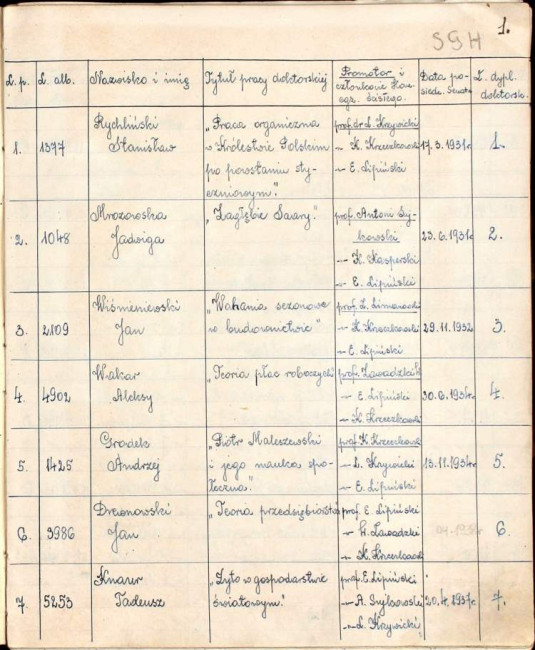 1.
SGH
L. p.
L. alb.
Nazwisko i imię
Tytuł pracy doktorskiej
Promotor i
członkowie Kom.
egz. ścisłego.
Data po-
siedz. Senatu
L. dypl.
doktorsk.
1.
1377
Rychliński
Stanisław
„Praca organiczna
w Królestwie Polskim
po powstaniu sty-
czniowym".
prof. dr L. Krzywicki
" K. Krzeczkowski
" E. Lipiński
17.3.1931r.
1.
2.
1048
Mrozowska
Jadwiga
„Zagłębie Saary".
prof. Antoni Suj-
kowski
" K. Kasperski
" E. Lipiński
23.6.1931r.
2.
3.
2109
Wiśniewski
Jan
„Wahania sezonowe
w budownictwie"
prof. L.
" K. Krzeczkowski
" E. Lipiński
29.11.1932
3.
4.
4902
Wakar
Aleksy
„Teoria płac roboczych"
prof. Zawadzki
" E. Lipiński
" K. Krzeczkowski
30.6.1934r.
4.
5.
1425
Grodek
Andrzej
„Piotr Maleszewski
i jego nauka spo-
łeczna".
prof. K. Krzeczkowski
" L. Krzywicki
" E. Lipiński
13.11.1934r.
5.
6.
3986
Drewnowski
Jan
„Teoria przedsiębiorstwa
prof. E. Lipiński
" W. Zawadzki
" K. Krzeczkowski
6.
7.
5253
Knauer
Tadeusz
„Żyto w gospodarstwie
światowym".
prof. E. Lipiński
" A. Sujkowski
" L. Krzywicki
20.4.1937r.
7.